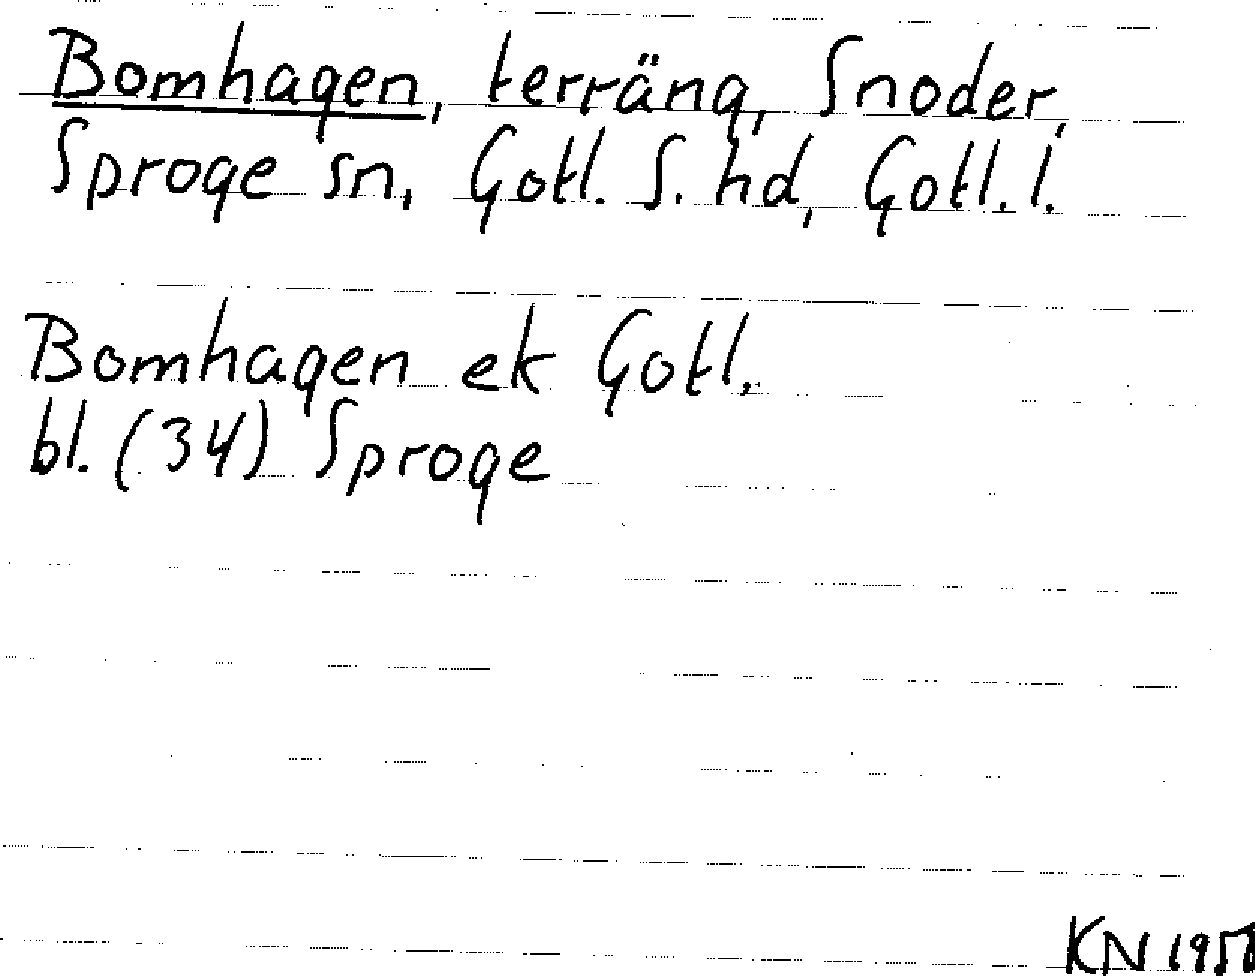 Bomhagen, terräng, Snoder,
Sproge sn, Gotl. S. hd, Gotl. l.
Bomhagen ek Gotl.
bl. (34) Sproge
KN